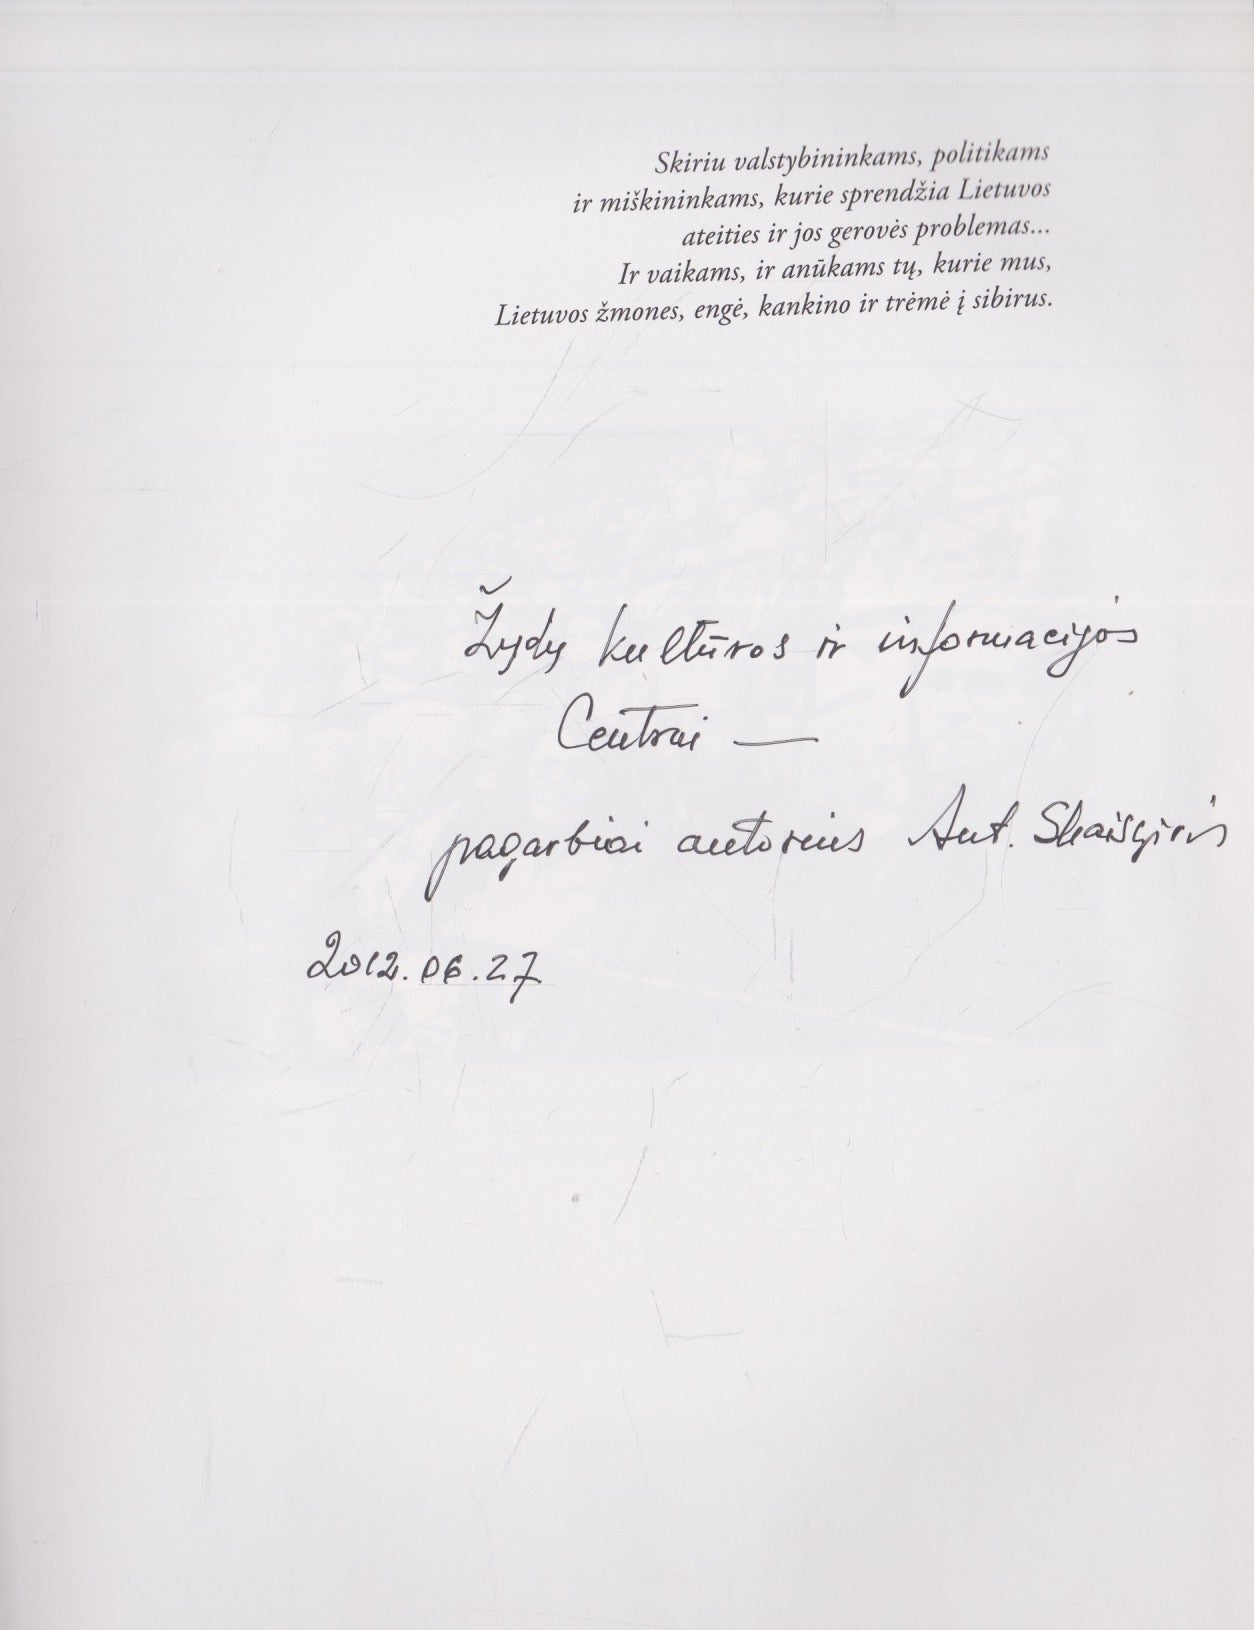 Skiriu valstybininkams, politikams
ir miškininkams, kurie sprendžia Lietuvos
ateities ir jos gerovės problemas...
Ir vaikams, ir anūkams tų, kurie mus,
Lietuvos žmones, engė, kankino ir trėmė į sibirus.
Žydų kultūros ir informacijos
Centrui —
pagarbiai autorius Ant. Skaisgiris
2012.06.27